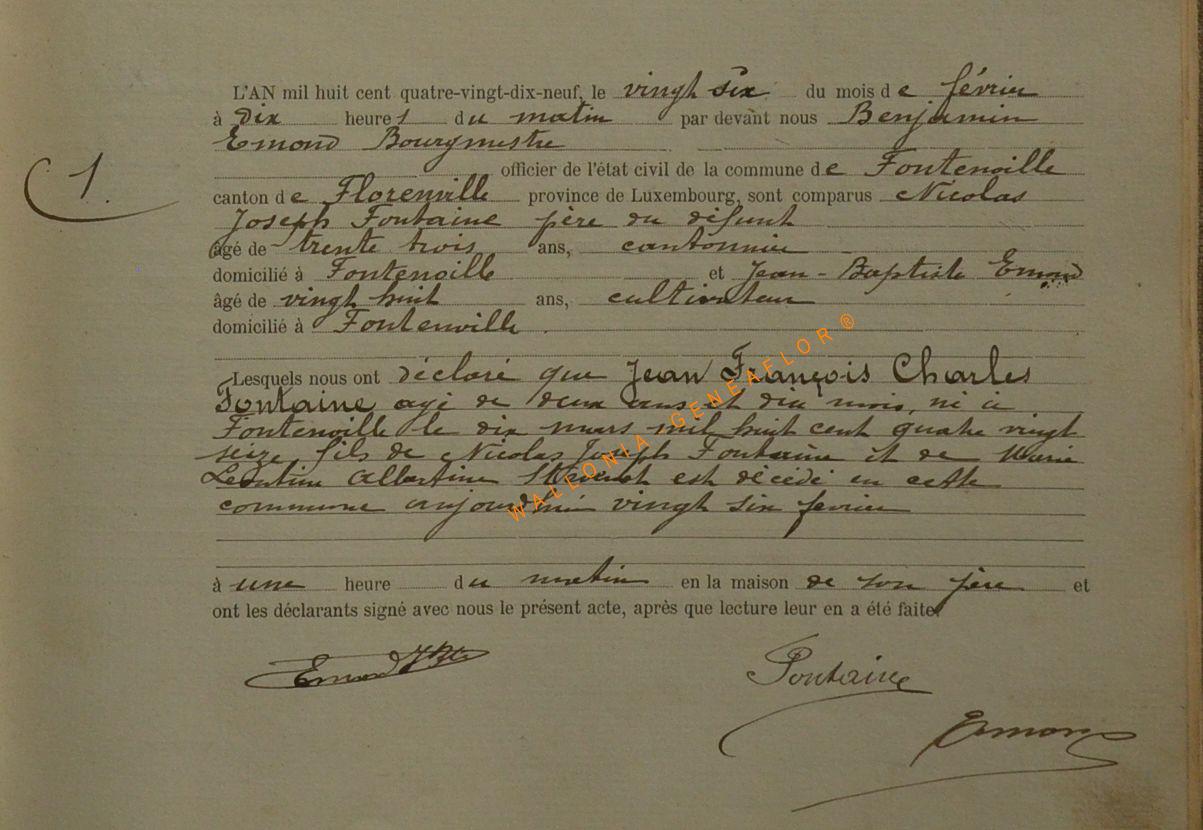 1.
L'AN mil huit cent quatre-vingt-dix-neuf, le vingt six du mois de février
à dix heures du matin par devant nous Benjamin
Emond Bourgmestre
officier de l'état civil de la commune de Fontenoille
canton de Florenville province de Luxembourg, sont comparus Nicolas
Joseph Fontaine père du défunt
âgé de trente trois ans, cantonnier
domicilié à Fontenoille et Jean-Baptiste Emond
âgé de vingt huit ans, cultivateur
domicilié à Fontenoille.
Lesquels nous ont déclaré que Jean François Charles
Fontaine agé de deux ans et dix mois, né à
Fontenoille le dix mars mil huit cent quatre vingt
seize, fils de Nicolas Joseph Fontaine et de Marie
Léontine Albertine est décédé en cette
commune aujourd'hui vingt six fevrier
à une heure du matin en la maison de son père et
ont les déclarants signé avec nous le présent acte, après que lecture leur en a été faite.
Emond JBte
Fontaine
Emond
WALLONIA GENEAFLOR ®